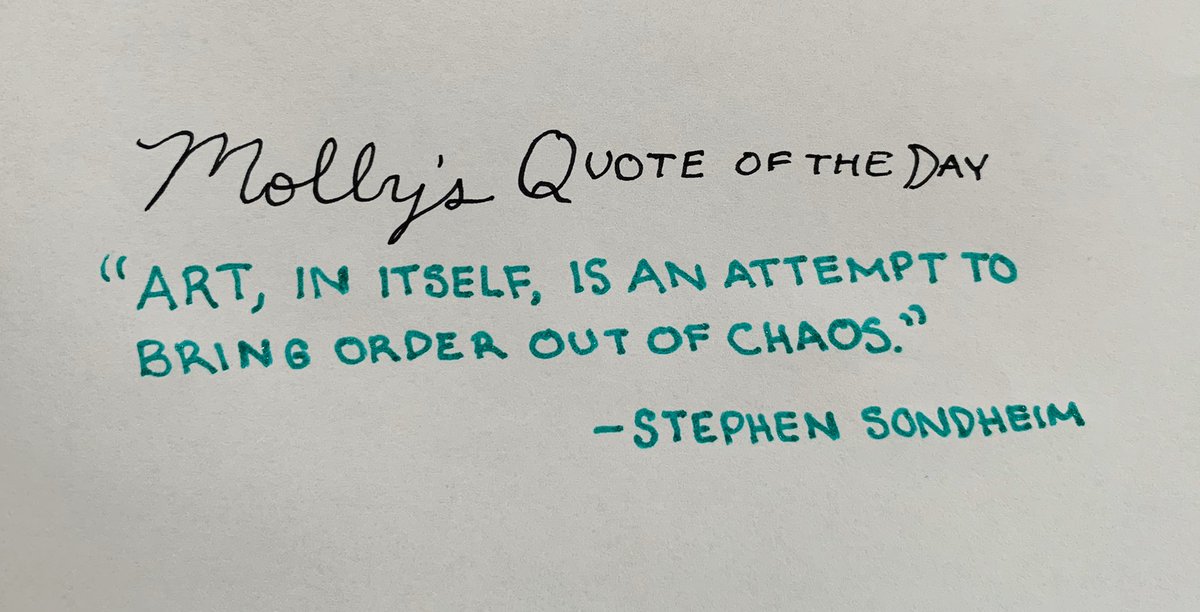 Molly's QUOTE OF THE DAY
“ART, IN ITSELF, IS AN ATTEMPT TO
BRING ORDER OUT OF CHAOS.”
–STEPHEN SONDHEIM